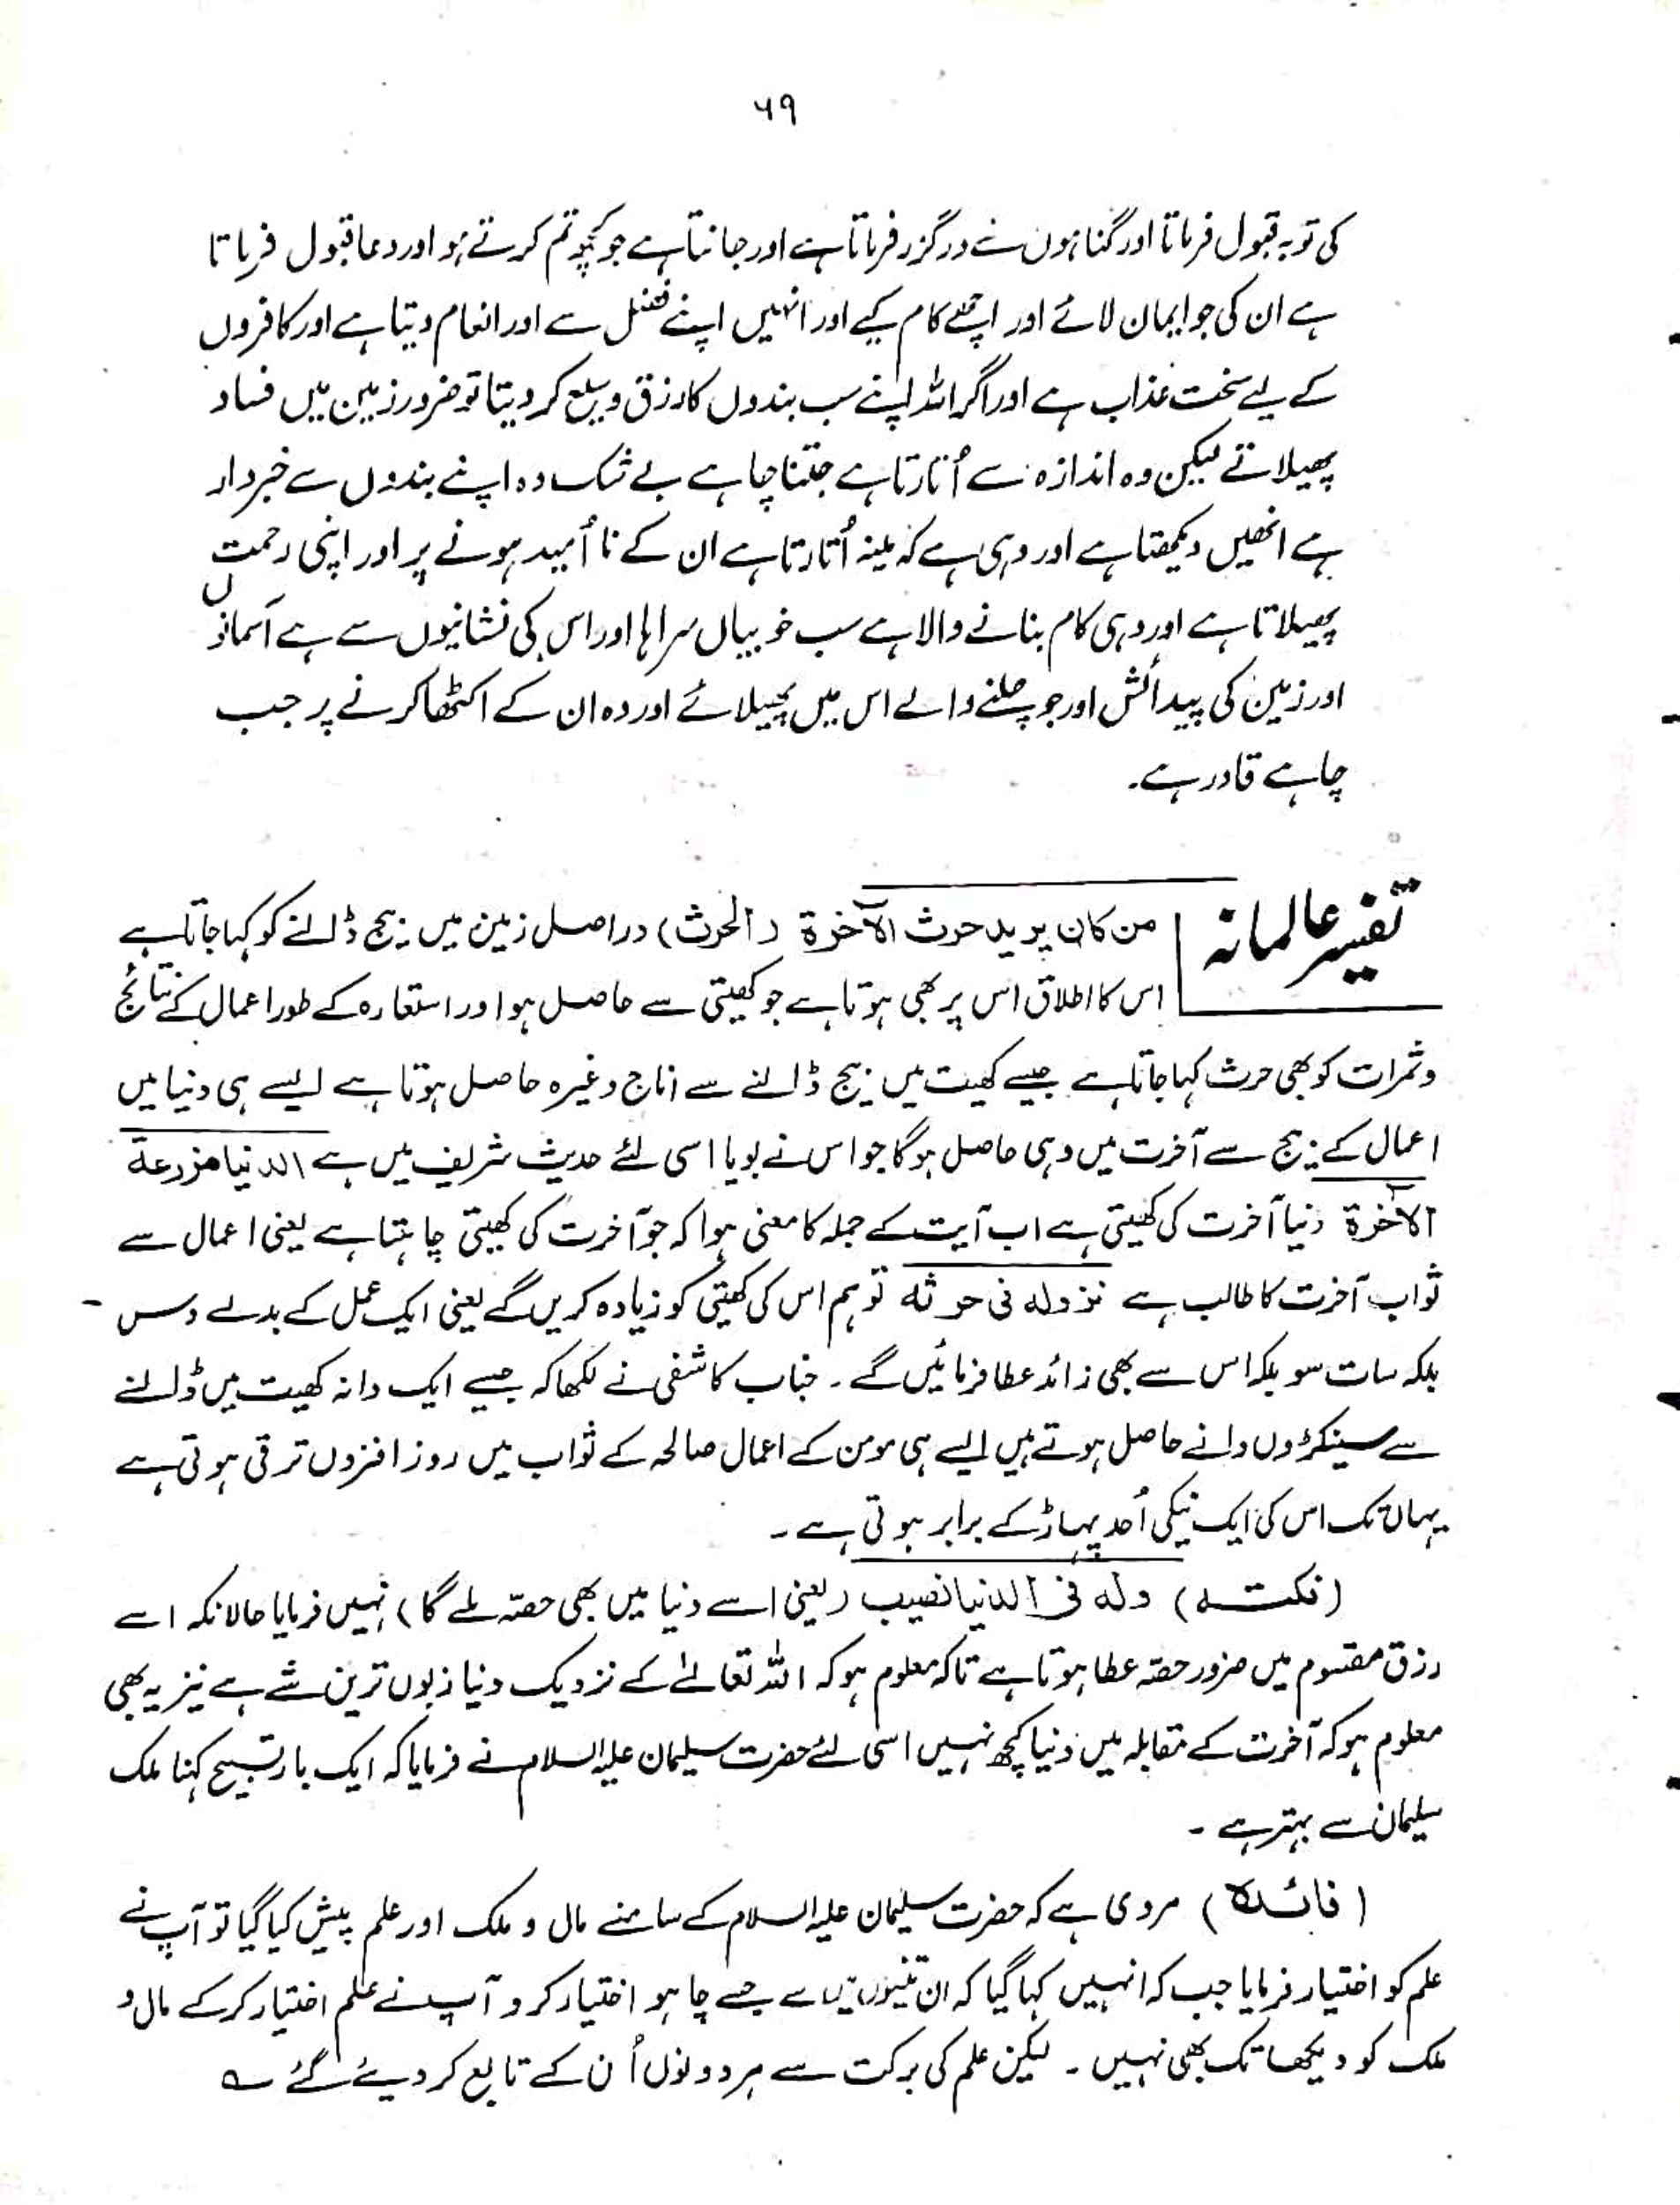 ۶۹
کی توبہ قبول فرماتا اور گناہوں سے درگزر فرماتا ہے اور جانتا ہے جو کچھ تم کرتے ہو اور دعا قبول فرماتا
ہے ان کی جو ایمان لائے اور اچھے کام کیے اور انہیں اپنے فضل سے اور انعام دیتا ہے اور کافروں
کے لیے سخت عذاب ہے اور اگر اللہ اپنے سب بندوں کا رزق وسیع کر دیتا تو ضرور زمین میں فساد
پھیلاتے لیکن وہ اندازہ سے اُتارتا ہے جتنا چاہے بے شک وہ اپنے بندوں سے خبردار
ہے انھیں دیکھتا ہے اور وہی ہے کہ مینہ اُتارتا ہے ان کے نا اُمید ہونے پر اور اپنی رحمت
پھیلاتا ہے اور وہی کام بنانے والا ہے سب خوبیاں سراہا اور اس کی نشانیوں سے ہے آسمانوں
اور زمین کی پیدائش اور جو چلنے والے اس میں پھیلائے اور وہ ان کے اکٹھا کرنے پر جب
چاہے قادر ہے۔
تفسیر عالمانہ
من کان یرید حرث الآخرۃ (الحرث) دراصل زمین میں بیج ڈالنے کو کہا جاتا ہے
اس کا اطلاق اس پر بھی ہوتا ہے جو کھیتی سے حاصل ہو اور استعارہ کے طور اعمال کے نتائج
و ثمرات کو بھی حرث کہا جاتا ہے جیسے کھیت میں بیج ڈالنے سے اناج وغیرہ حاصل ہوتا ہے ایسے ہی دنیا میں
اعمال کے بیج سے آخرت میں وہی حاصل ہوگا جو اس نے بویا اسی لئے حدیث شریف میں ہے الدنیا مزرعۃ
الآخرۃ دنیا آخرت کی کھیتی ہے اب آیت کے جملہ کا معنی ہوا کہ جو آخرت کی کھیتی چاہتا ہے یعنی اعمال سے
ثواب آخرت کا طالب ہے نزد لہ فی حرثہ تو ہم اس کی کھیتی کو زیادہ کریں گے یعنی ایک عمل کے بدلے دس
بلکہ سات سو بلکہ اس سے بھی زائد عطا فرمائیں گے ۔ جناب کاشفی نے لکھا کہ جیسے ایک دانہ کھیت میں ڈالنے
سے سینکڑوں دانے حاصل ہوتے ہیں ایسے ہی مومن کے اعمال صالحہ کے ثواب میں روز افزوں ترقی ہوتی ہے
یہاں تک اس کی ایک نیکی اُحد پہاڑ کے برابر ہوتی ہے ۔
(نکتہ) ولہ فی الدنیا نصیب (یعنی اسے دنیا میں بھی حصہ ملے گا) نہیں فرمایا حالانکہ اسے
رزق مقسوم میں ضرور حصہ عطا ہوتا ہے تاکہ معلوم ہو کہ اللہ تعالےٰ کے نزدیک دنیا زبوں ترین شے ہے نیز یہ بھی
معلوم ہو کہ آخرت کے مقابلہ میں دنیا کچھ نہیں اسی لئے حضرت سلیمان علیہ السلام نے فرمایا کہ ایک بار تسبیح کہنا ملک
سلیمان سے بہتر ہے ۔
(فائدہ) مروی ہے کہ حضرت سلیمان علیہ السلام کے سامنے مال و ملک اور علم پیش کیا گیا تو آپ نے
علم کو اختیار فرمایا جب کہ انہیں کہا گیا کہ ان تینوں میں سے جسے چاہو اختیار کرو آپ نے علم اختیار کر کے مال و
ملک کو دیکھا تک بھی نہیں ۔ لیکن علم کی برکت سے ہر دونوں اُن کے تابع کر دیئے گئے ؎